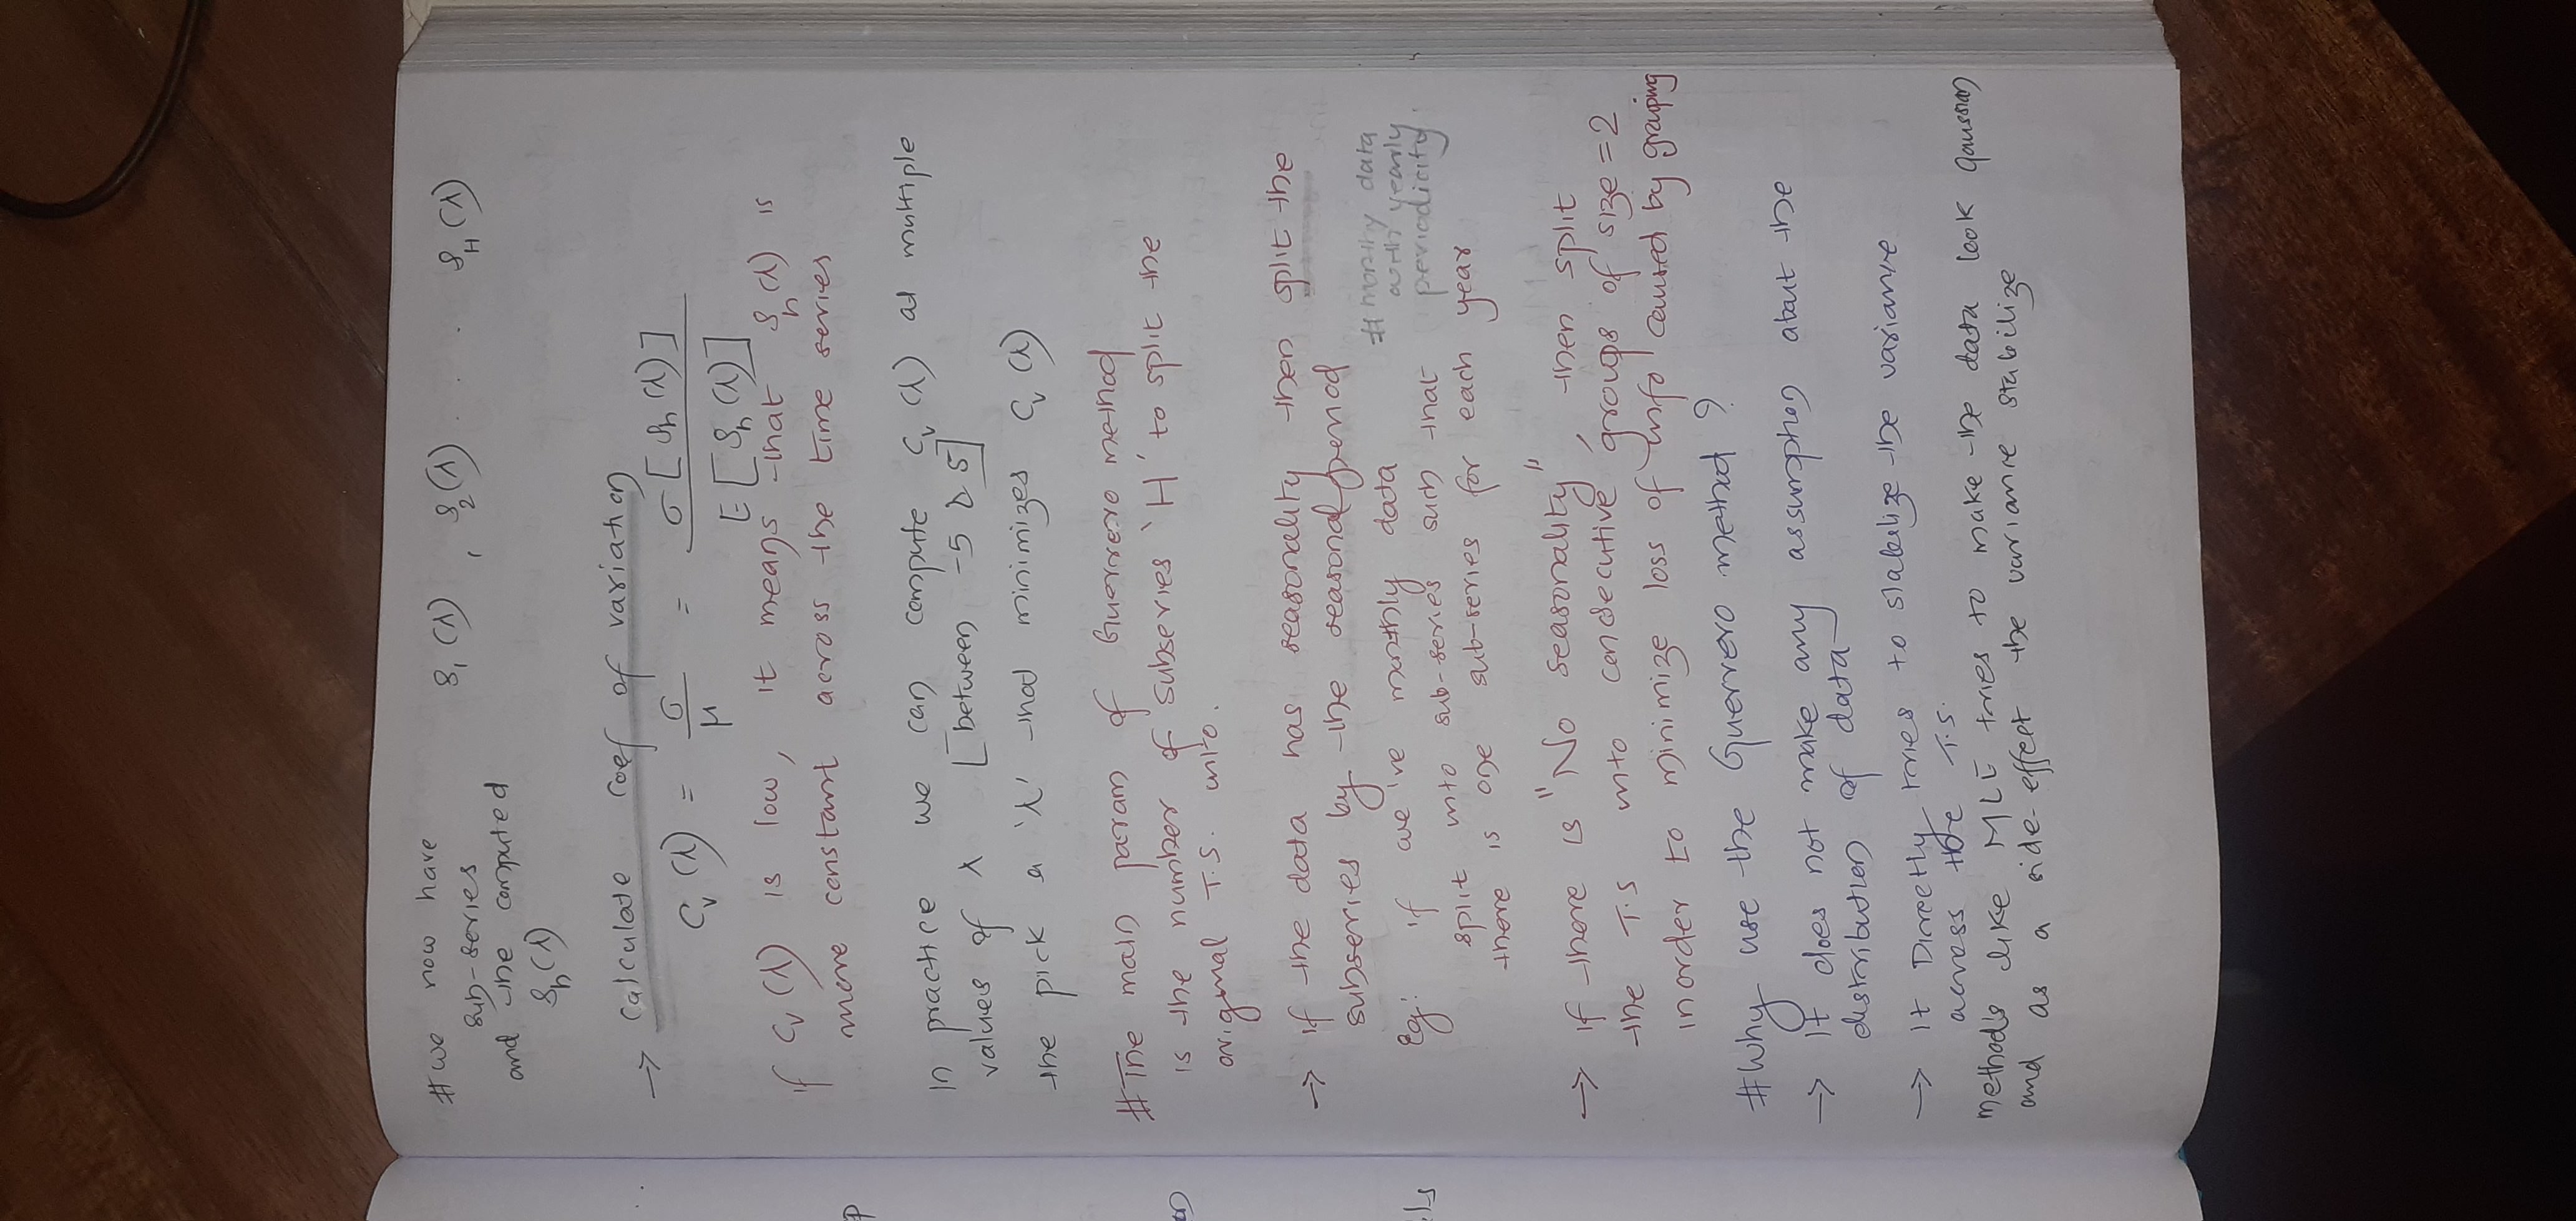 # we now have
sub-series
and the computed
S_h(λ)
S_1(λ) , S_2(λ) . . . . S_H(λ)
→ Calculate coef of variation
C_v(λ) = σ / μ = σ[S_h(λ)] / E[S_h(λ)]
if C_v(λ) is low, it means that S_h(λ) is
more constant across the time series
In practice we can compute C_v(λ) at multiple
values of λ [between -5 & 5]
the pick a 'λ' that minimizes C_v(λ)
# The main param of Guerrero method
is the number of subseries 'H' to split the
original T.S. into.
→ if the data has seasonality then split the
subseries by the seasonal period
# monthly data
with yearly
periodicity.
Eg: if we've monthly data
split into sub-series such that
there is one sub-series for each year
→ if there is "No seasonality", then split
the T.S into consecutive groups of size = 2
inorder to minimize loss of info caused by grouping
# Why use the Guerrero method ?
→ It does not make any assumption about the
distribution of data
→ It Directly tries to stabilize the variance
across the T.S.
method's like MLE tries to make the data look gaussian
and as a side-effect the variance stabilize